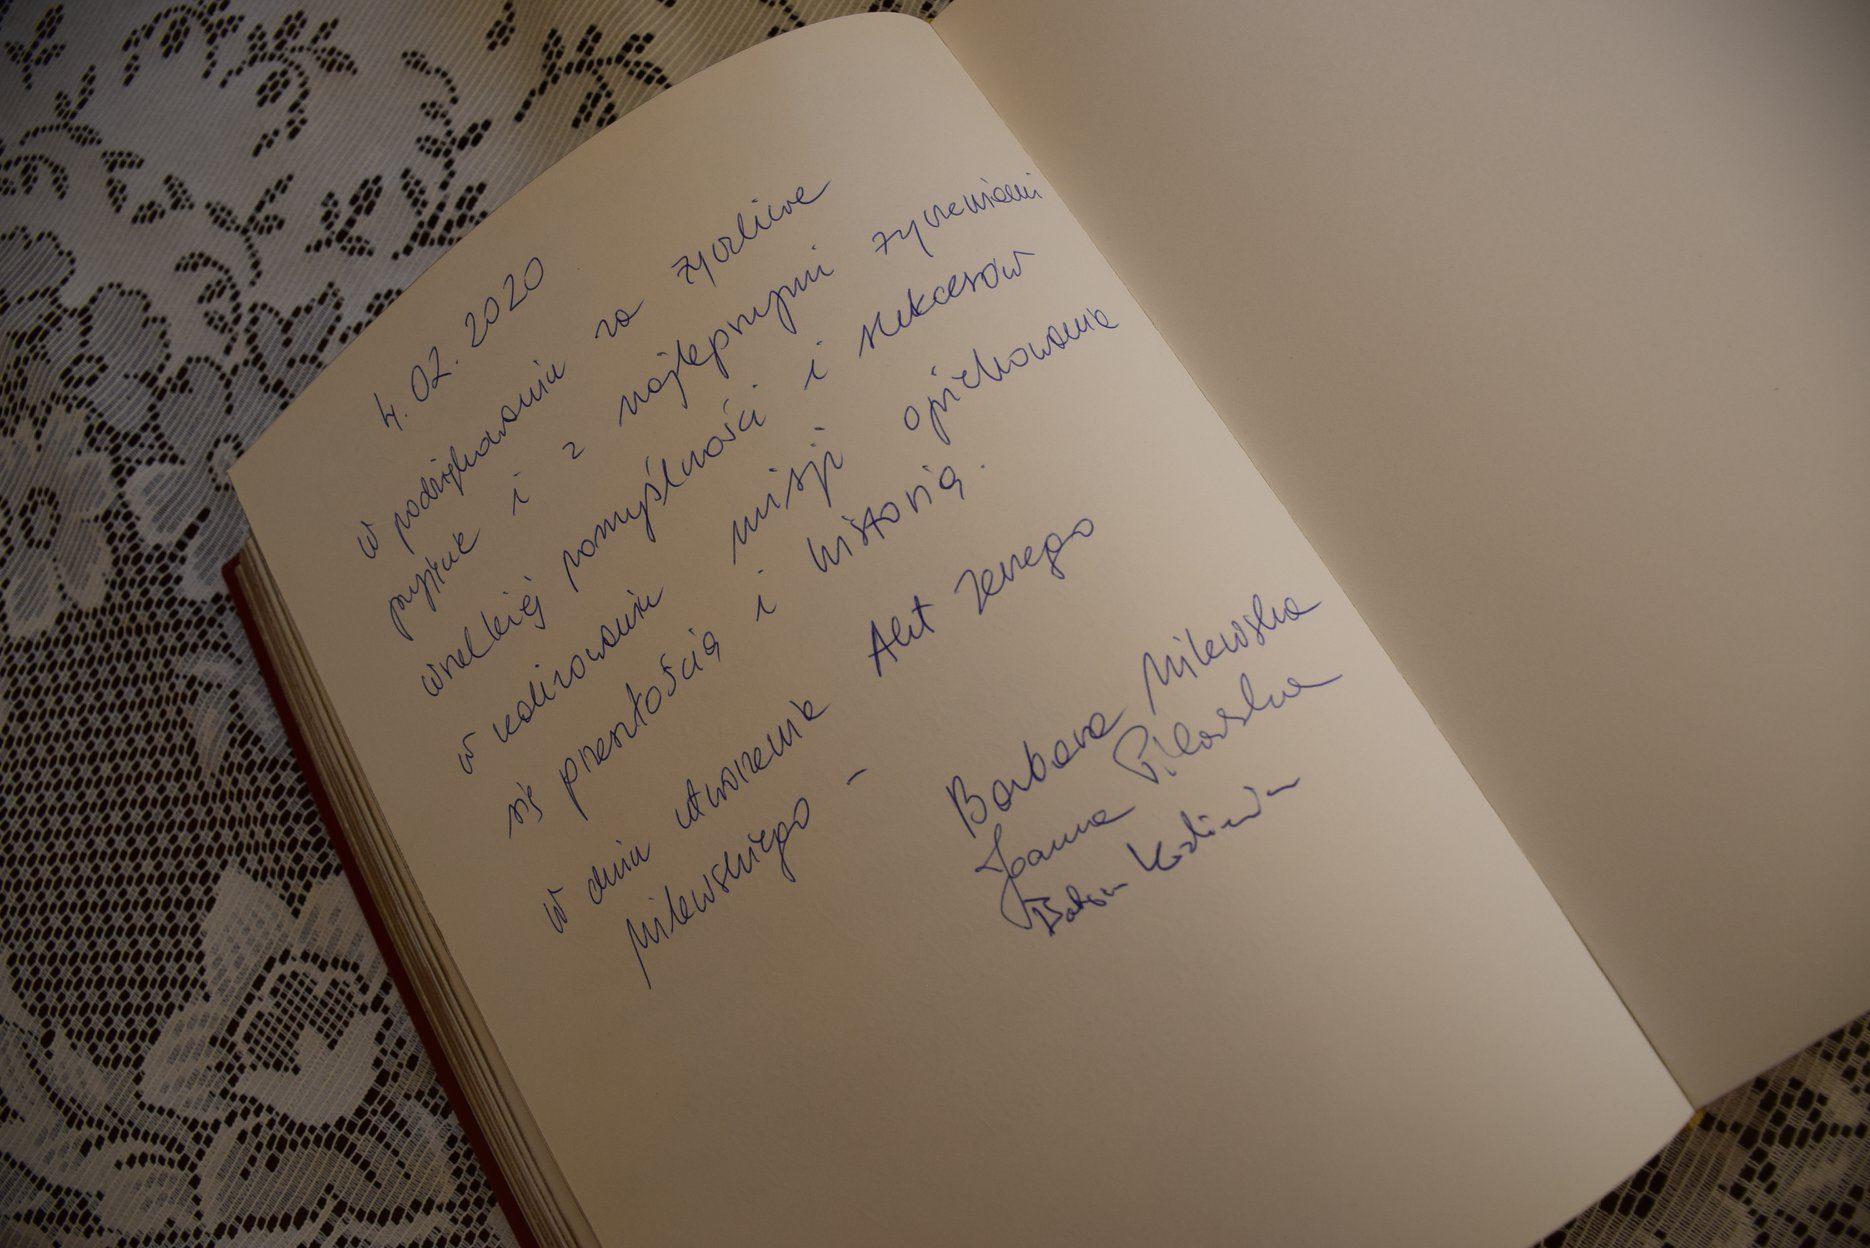 4.02.2020
w podziękowaniu za życzliwe
przyjęcie i z najlepszymi życzeniami
wielkiej pomyślności i sukcesów
w realizowaniu misji opiekowania
się przeszłością i historią.
w dniu utworzenia Akt Jerzego
Milewskiego –
Barbara Milewska
Joanna Pilarska